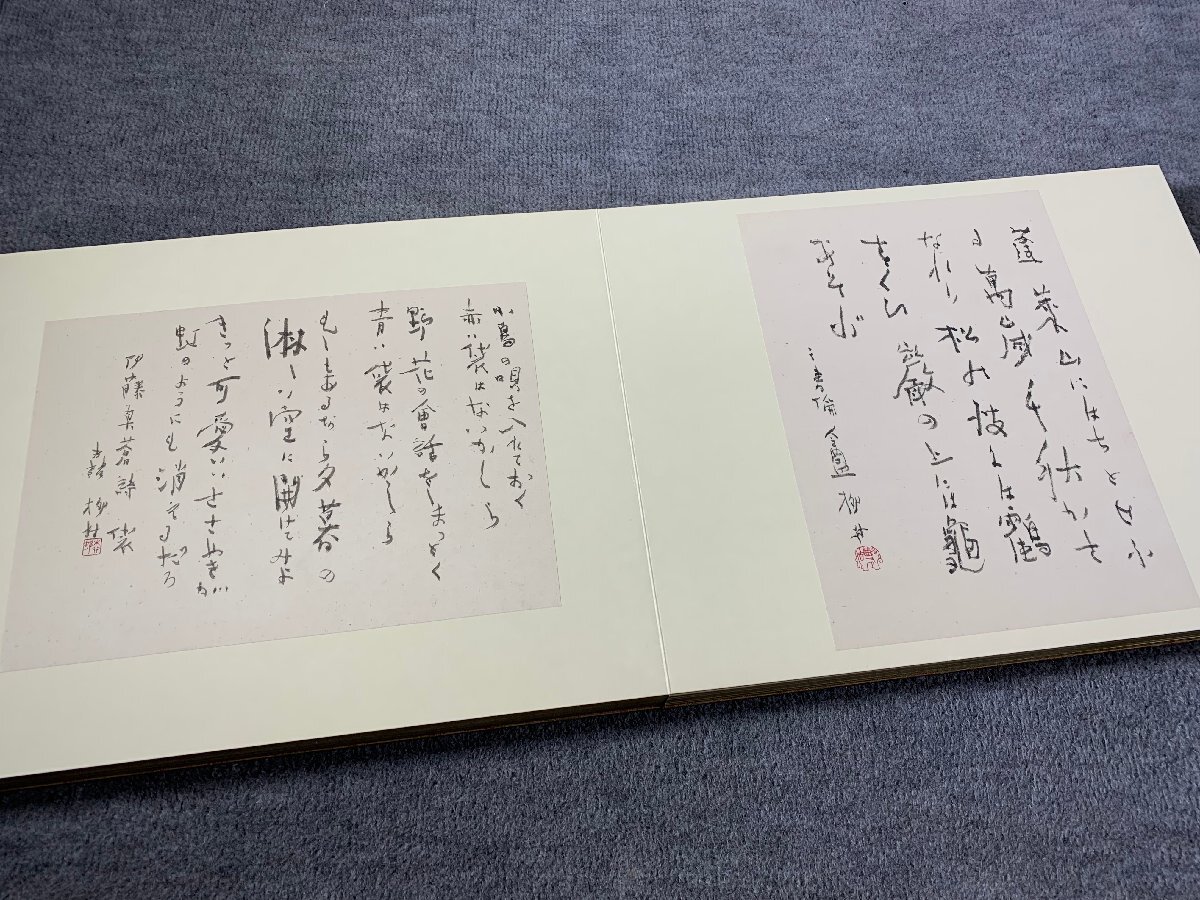 蓬莱山にはちとせふ
る萬歳千秋かさ
なれり松の枝には鶴
すくひ巌の上には龜
あそぶ
小鳥の唄を入れておく
赤い袋はないかしら
野花の會話をしまっとく
青い袋はないかしら
もしもあるなら夕暮の
淋しい空に開けてみよ
きっと可愛いささやきが
虹のようにも消えるだろ
伊藤眞蒼詩 袋